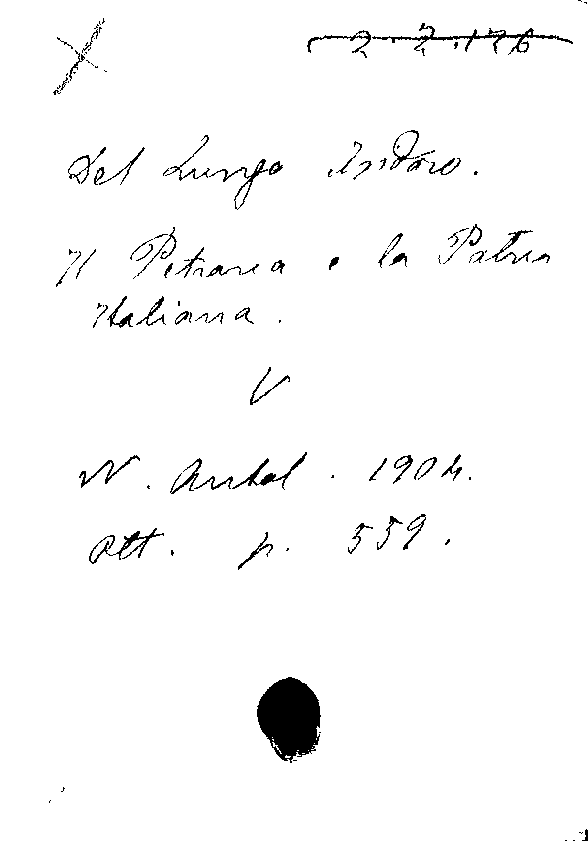 2.2.126
Del Lungo Isidoro.
Il Petrarca e la Patria
Italiana.
V
N. Antol. 1904.
Ott. p. 559.